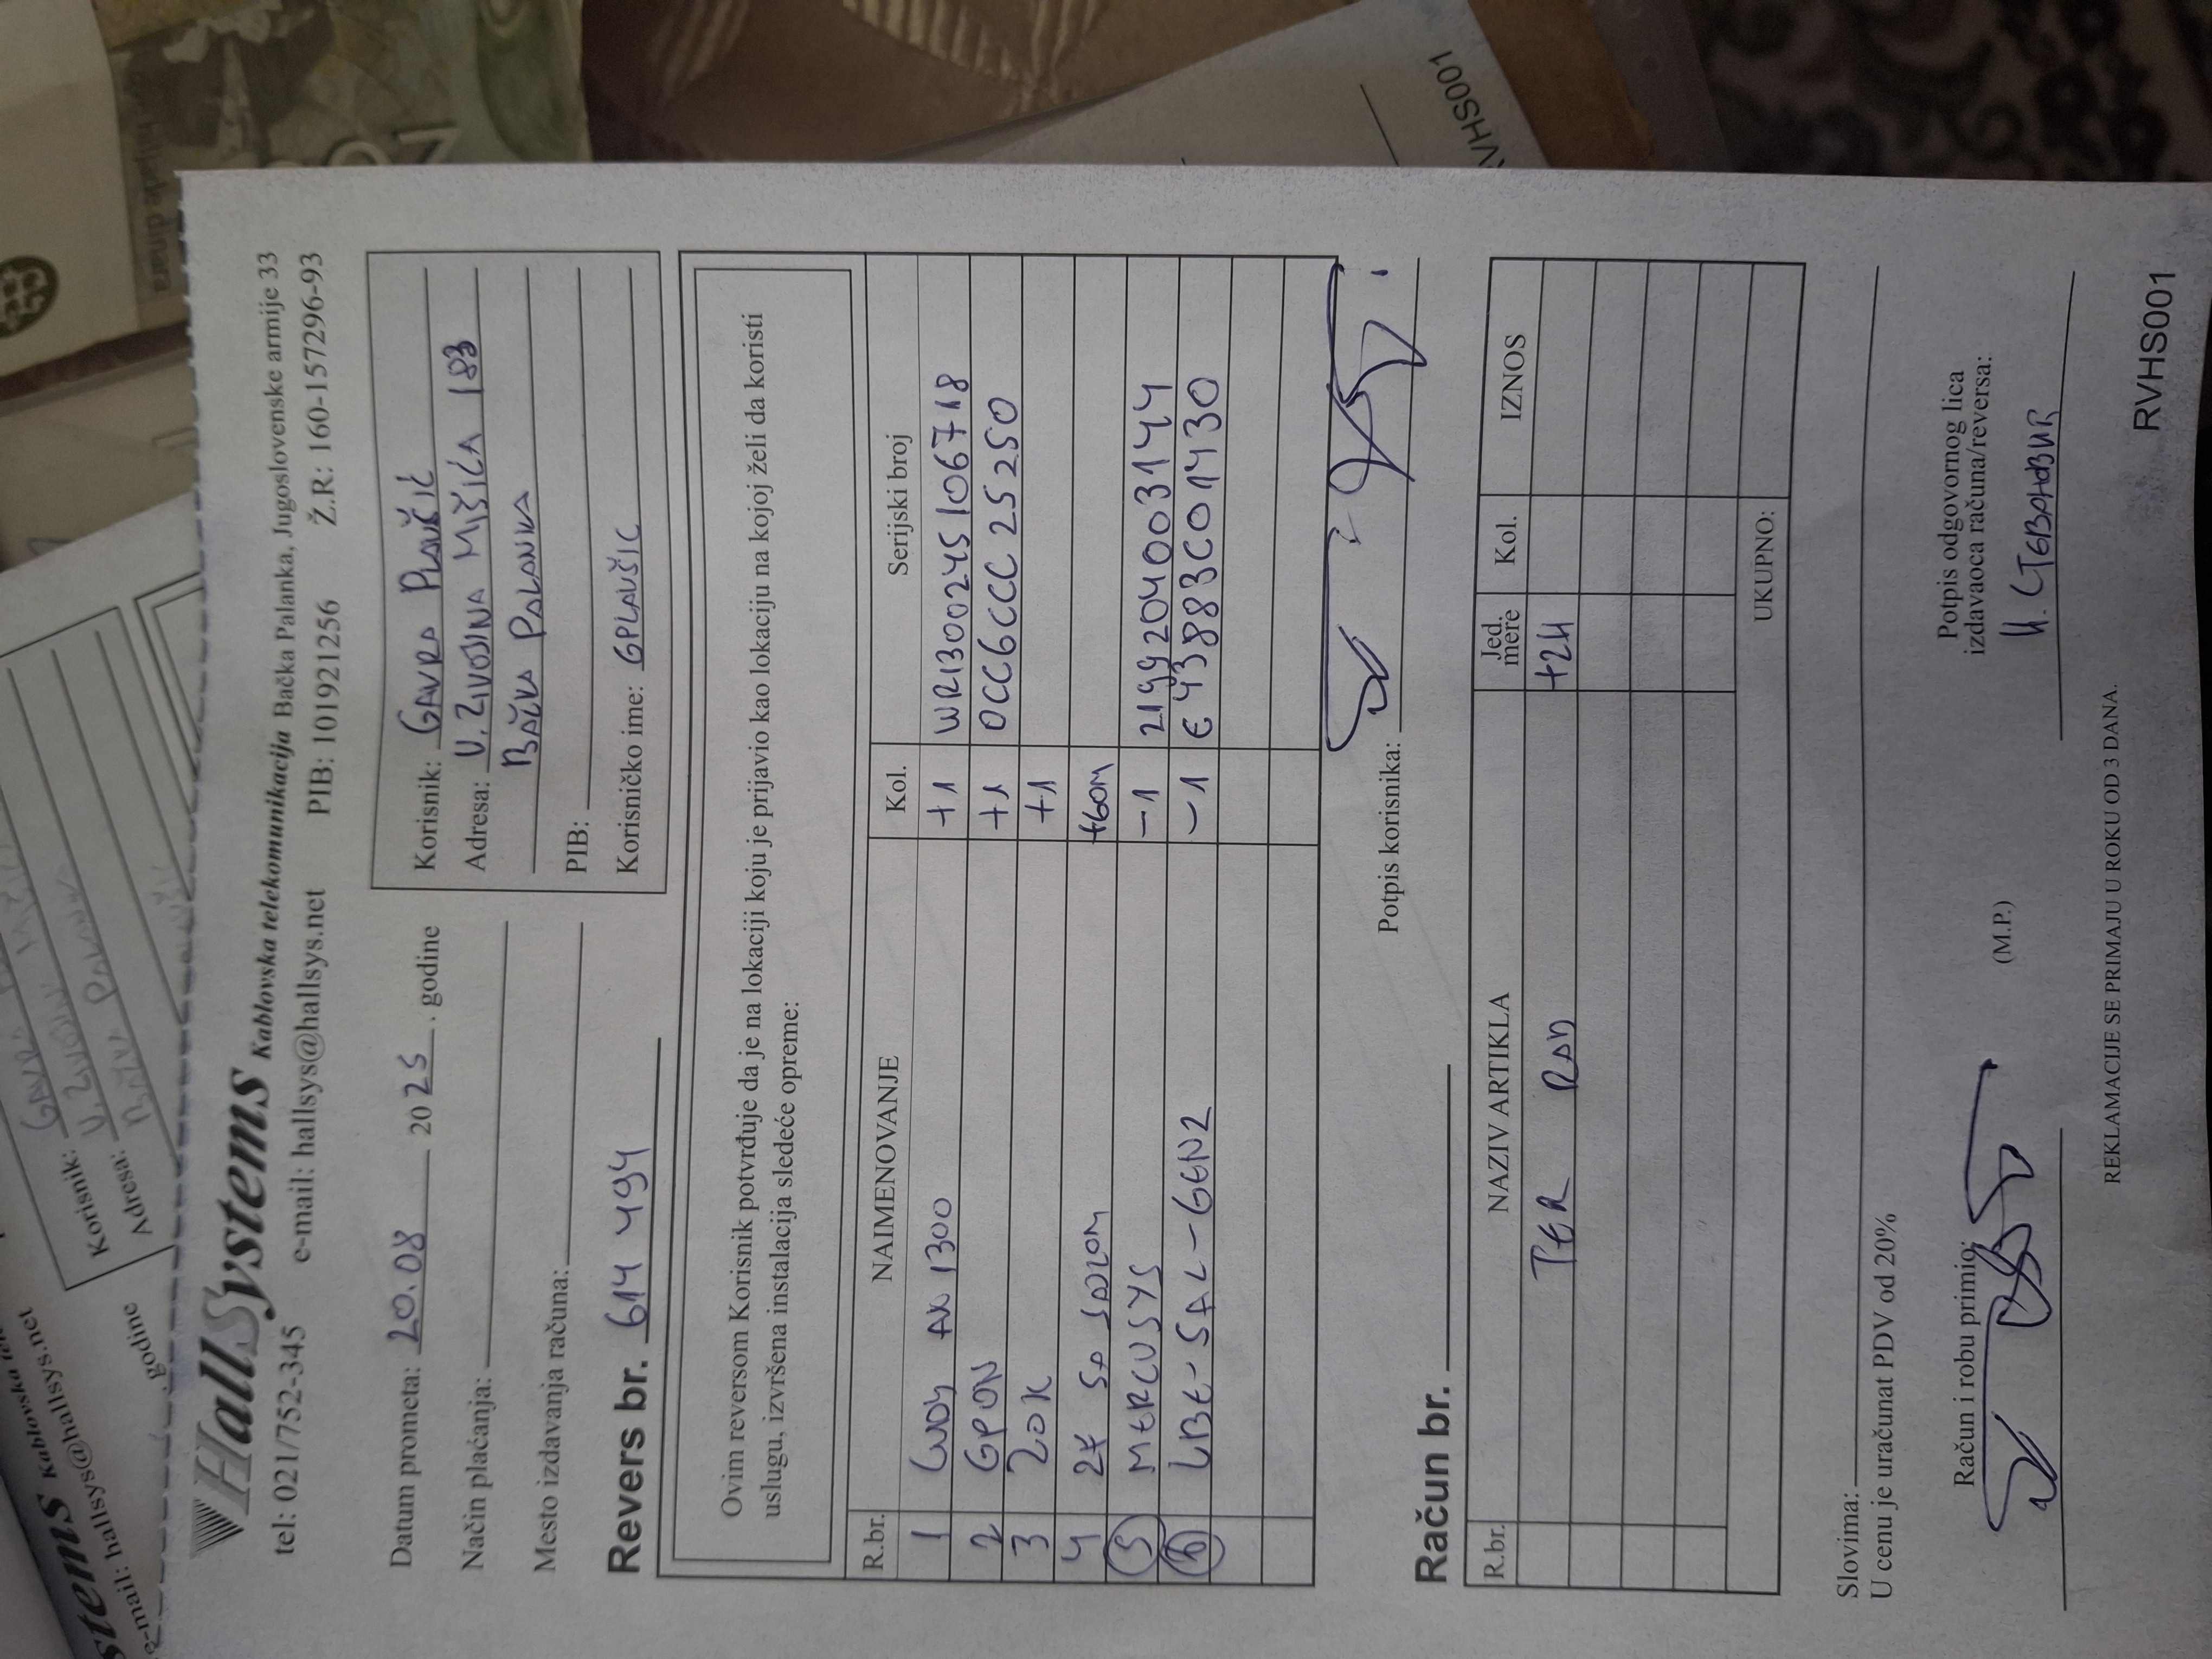 HallSystems Kablovska telekomunikacija Bačka Palanka, Jugoslovenske armije 33
tel: 021/752-345 e-mail: hallsys@hallsys.net PIB: 101921256 Ž.R: 160-157296-93
Datum prometa: 20.08 2025. godine
Način plaćanja:
Mesto izdavanja računa:
Korisnik: GAVRA PLAUŠIĆ
Adresa: V. ŽIVOJINA MIŠIĆA 183
BAČKA PALANKA
PIB:
Korisničko ime: GPLAUŠIC
Revers br. 614 494
Ovim reversom Korisnik potvrđuje da je na lokaciji koju je prijavio kao lokaciju na kojoj želi da koristi
uslugu, izvršena instalacija sledeće opreme:
R.br. NAIMENOVANJE Kol. Serijski broj
1 CUDY AX 1300 +1 WR1300245106718
2 GPON +1 0CC6CCC25250
3 ZOK +1
4 2* SA SAJLOM +60M
5 MERCUSYS -1 2199204003144
6 LBE-5AC-GEN2 -1 E43883C01430
Potpis korisnika:
Račun br.
R.br. NAZIV ARTIKLA Jed. mere Kol. IZNOS
TER RAD +2H
UKUPNO:
Slovima:
U cenu je uračunat PDV od 20%
Račun i robu primio:
(M.P.)
Potpis odgovornog lica
izdavaoca računa/reversa:
И. СТЕВАНОВИЋ
REKLAMACIJE SE PRIMAJU U ROKU OD 3 DANA.
RVHS001
stems Kablovska
e-mail: hallsys@hallsys.net
. godine
Korisnik: GAVRA
Adresa: V. ŽIVOJINA MIŠIĆA
BAČKA PALANKA
hiljade dinara
VHS001